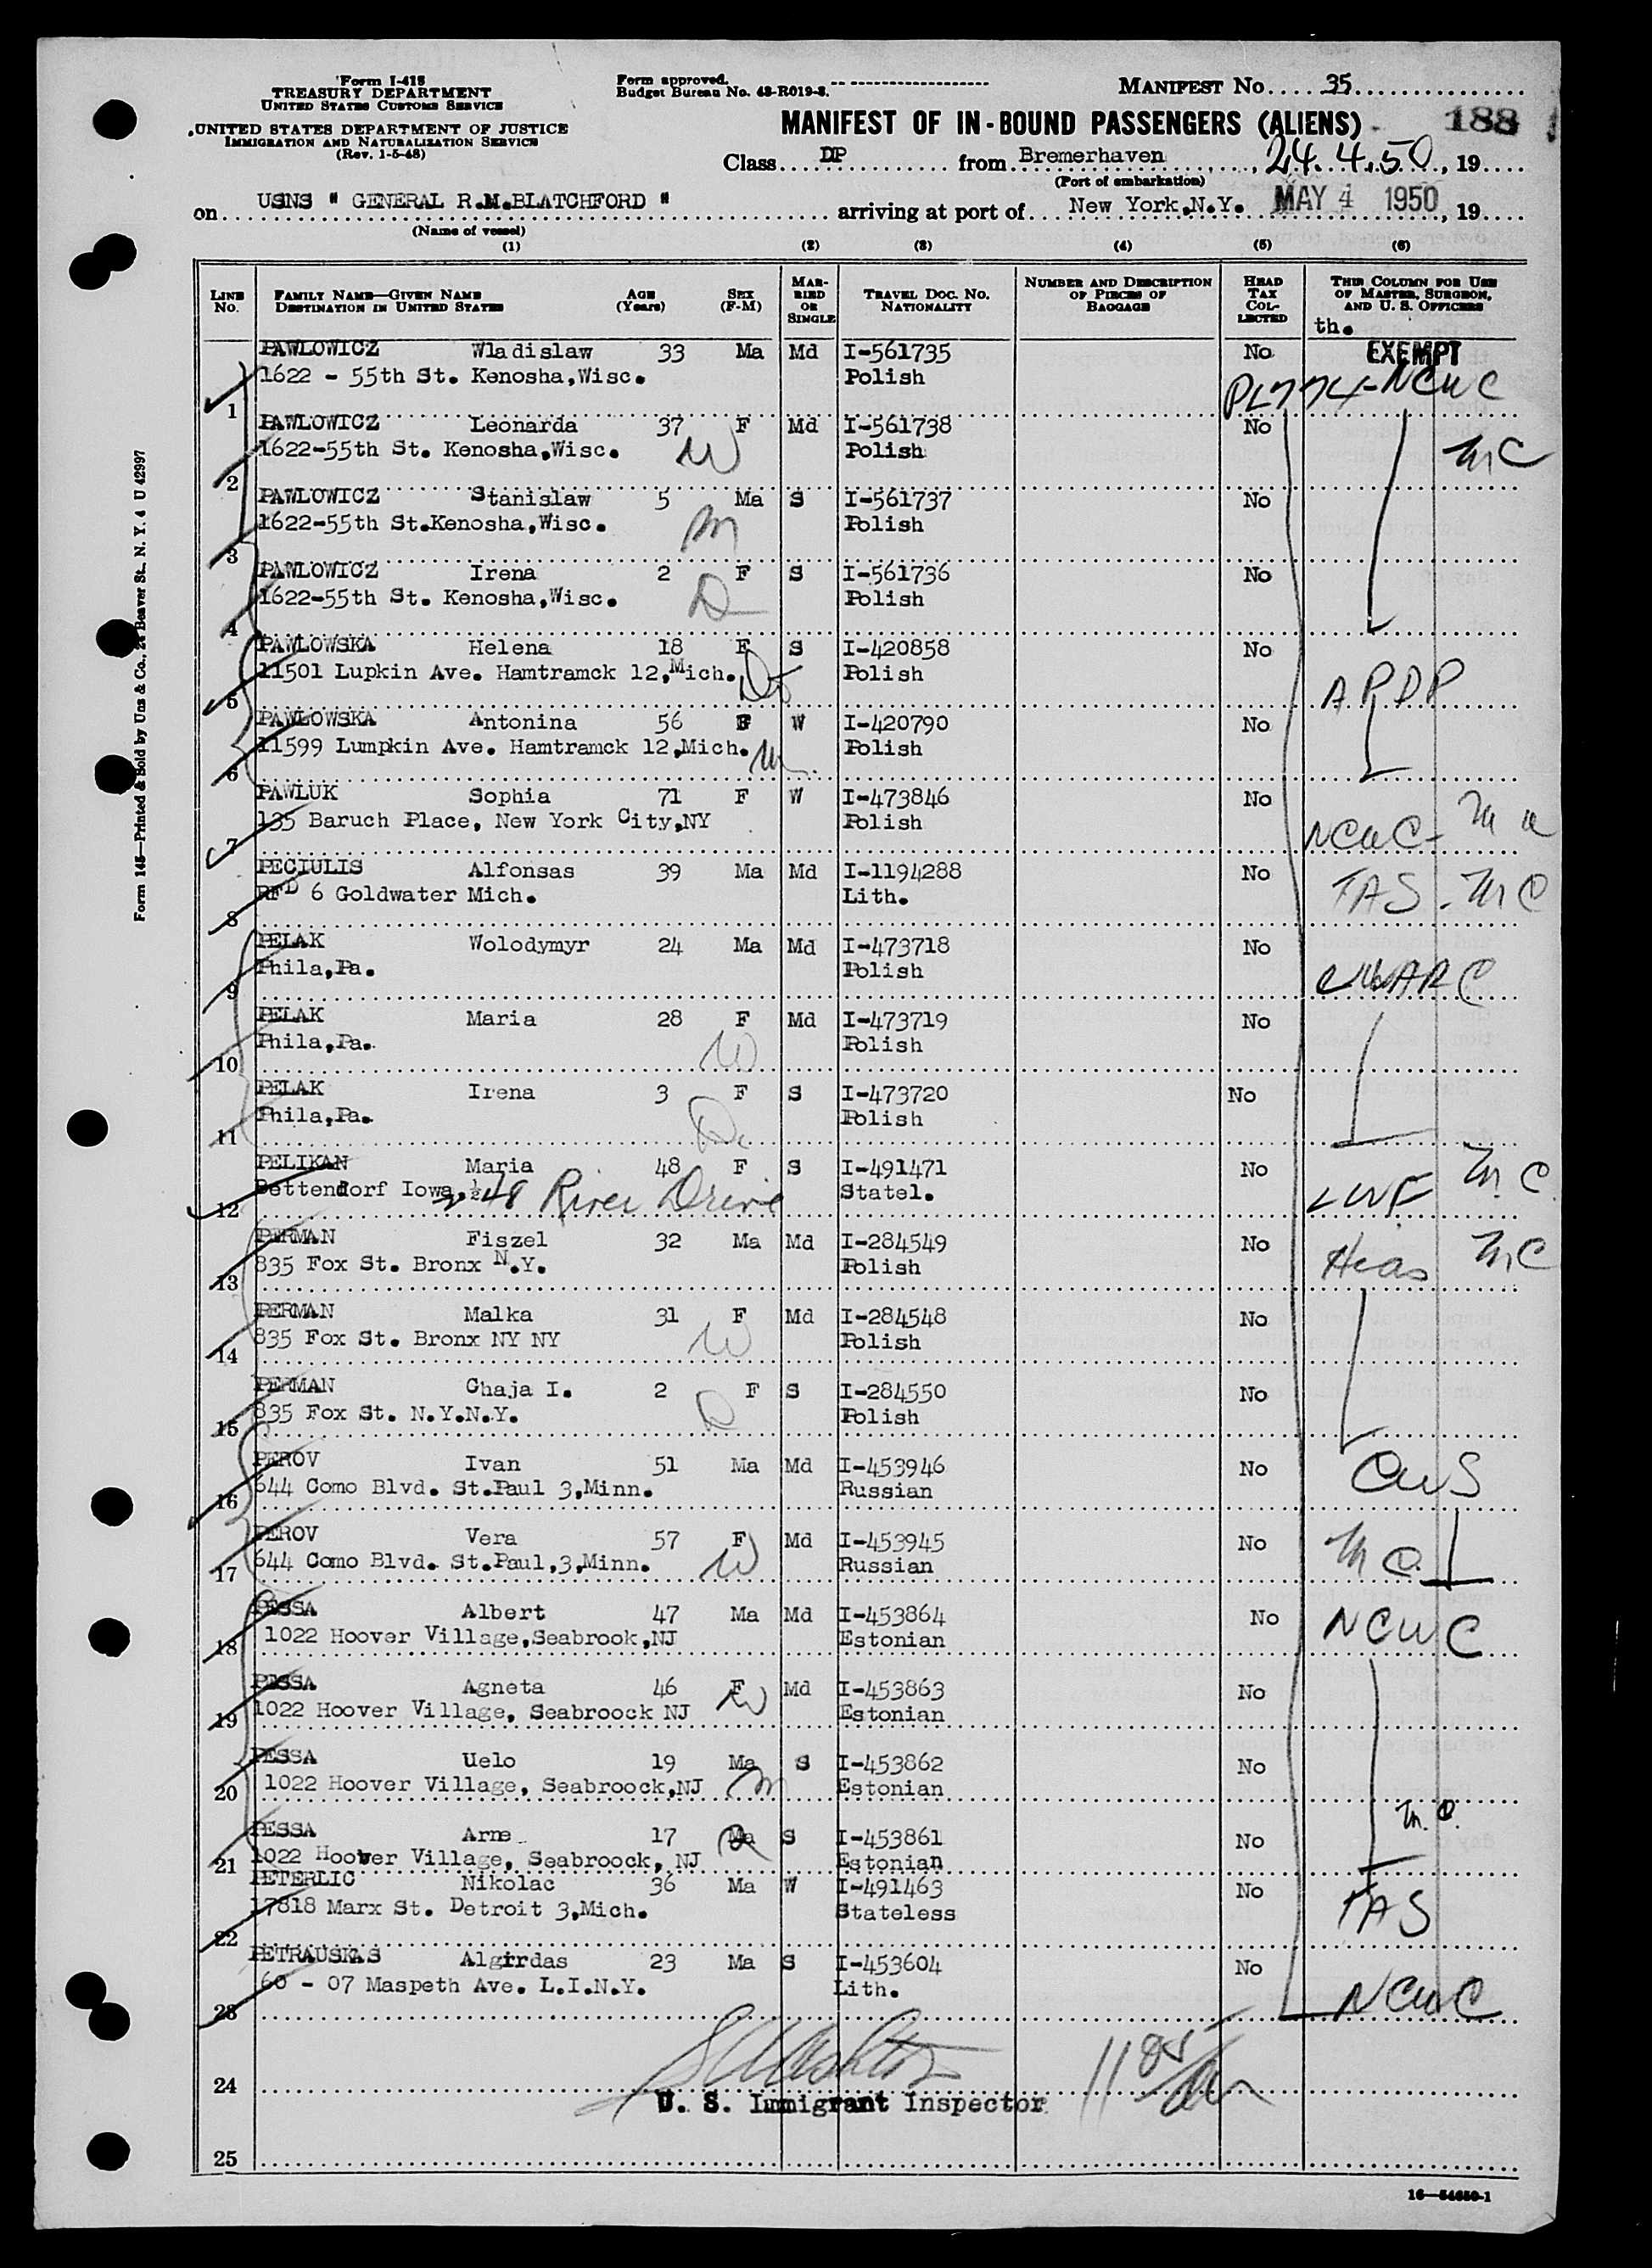 Form I-415
TREASURY DEPARTMENT
UNITED STATES CUSTOMS SERVICE
UNITED STATES DEPARTMENT OF JUSTICE
IMMIGRATION AND NATURALIZATION SERVICE
(Rev. 1-5-48)
Form approved.
Budget Bureau No. 43-R019-3.
MANIFEST No. 35
MANIFEST OF IN-BOUND PASSENGERS (ALIENS)
188
Class DP from Bremerhaven, 24.4.50, 19
(Port of embarkation)
on USNS " GENERAL R.M.BLATCHFORD " arriving at port of New York,N.Y. MAY 4 1950, 19
(Name of vessel)
(1) (2) (3) (4) (5) (6)
LINE No. FAMILY NAME—GIVEN NAME DESTINATION IN UNITED STATES AGE (Years) SEX (F-M) MARRIED OR SINGLE TRAVEL DOC. NO. NATIONALITY NUMBER AND DESCRIPTION OF PIECES OF BAGGAGE HEAD TAX COLLECTED THIS COLUMN FOR USE OF MASTER, SURGEON, AND U. S. OFFICERS
th.
PAWLOWICZ Wladislaw 33 Ma Md I-561735 No EXEMPT
1622 - 55th St. Kenosha,Wisc. Polish PL774-NCWC
1
PAWLOWICZ Leonarda 37 F Md I-561738 No
1622-55th St. Kenosha,Wisc. W Polish MC
2
PAWLOWICZ Stanislaw 5 Ma S I-561737 No
1622-55th St.Kenosha,Wisc. M Polish
3
PAWLOWICZ Irena 2 F S I-561736 No
1622-55th St. Kenosha,Wisc. D Polish
4
PAWLOWSKA Helena 18 F S I-420858 No
11501 Lupkin Ave. Hamtramck 12,Mich. Polish APDP
5
PAWLOWSKA Antonina 56 F W I-420790 No
11599 Lumpkin Ave. Hamtramck 12,Mich. M Polish
6
PAWLUK Sophia 71 F W I-473846 No
135 Baruch Place, New York City,NY Polish NCWC-
7
PECIULIS Alfonsas 39 Ma Md I-1194288 No
RFD 6 Goldwater Mich. Lith. TAS - MC
8
PELAK Wolodymyr 24 Ma Md I-473718 No
Phila,Pa. Polish
9
PELAK Maria 28 F Md I-473719 No
Phila,Pa. W Polish
10
PELAK Irena 3 F S I-473720 No
Phila,Pa. D Polish
11
PELIKAN Maria 48 F S I-491471 No
Bettendorf Iowa, River Drive Statel. LWF M.C.
12
PERMAN Fiszel 32 Ma Md I-284549 No
835 Fox St. Bronx N.Y. Polish Hias MC
13
PERMAN Malka 31 F Md I-284548 No
835 Fox St. Bronx NY NY W Polish
14
PERMAN Chaja I. 2 F S I-284550 No
835 Fox St. N.Y.N.Y. D Polish
15
PEROV Ivan 51 Ma Md I-453946 No
644 Como Blvd. St.Paul 3,Minn. Russian CWS
16
PEROV Vera 57 F Md I-453945 No
644 Como Blvd. St.Paul,3,Minn. W Russian MC
17
PESSA Albert 47 Ma Md I-453864 No
1022 Hoover Village,Seabrook,NJ Estonian NCWC
18
PESSA Agneta 46 F Md I-453863 No
1022 Hoover Village, Seabroock NJ W Estonian
19
PESSA Uelo 19 Ma S I-453862 No
1022 Hoover Village, Seabroock,NJ M Estonian
20
PESSA Arne 17 Ma S I-453861 No M.C.
1022 Hoover Village, Seabroock, NJ Estonian
21
PETERLIC Nikolac 36 Ma W I-491463 No
17818 Marx St. Detroit 3,Mich. Stateless TAS
22
PETRAUSKAS Algirdas 23 Ma S I-453604 No
60 - 07 Maspeth Ave. L.I.N.Y. Lith. NCWC
23
24
U. S. Immigrant Inspector
25
16—54650-1
Form 145—Printed & Sold by Unz & Co., 24 Beaver St. N. Y. 4 U 42997